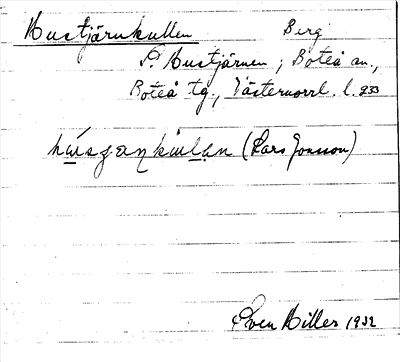 Hustjärnkullen Berg
S. Hustjärnen; Boteå sn.,
Boteå tg., Västernorrl. l. 233
(Lars Jonsson)
Sven Hiller 1932